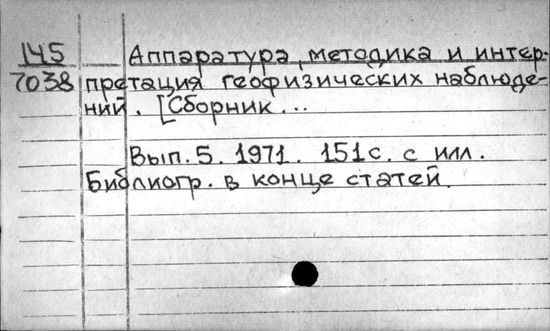 145
7038
Аппаратура, методика и интер-
претация геофизических наблюде-
ний. [Сборник...
Вып. 5. 1971. 151с. с илл.
Библиогр. в конце статей.